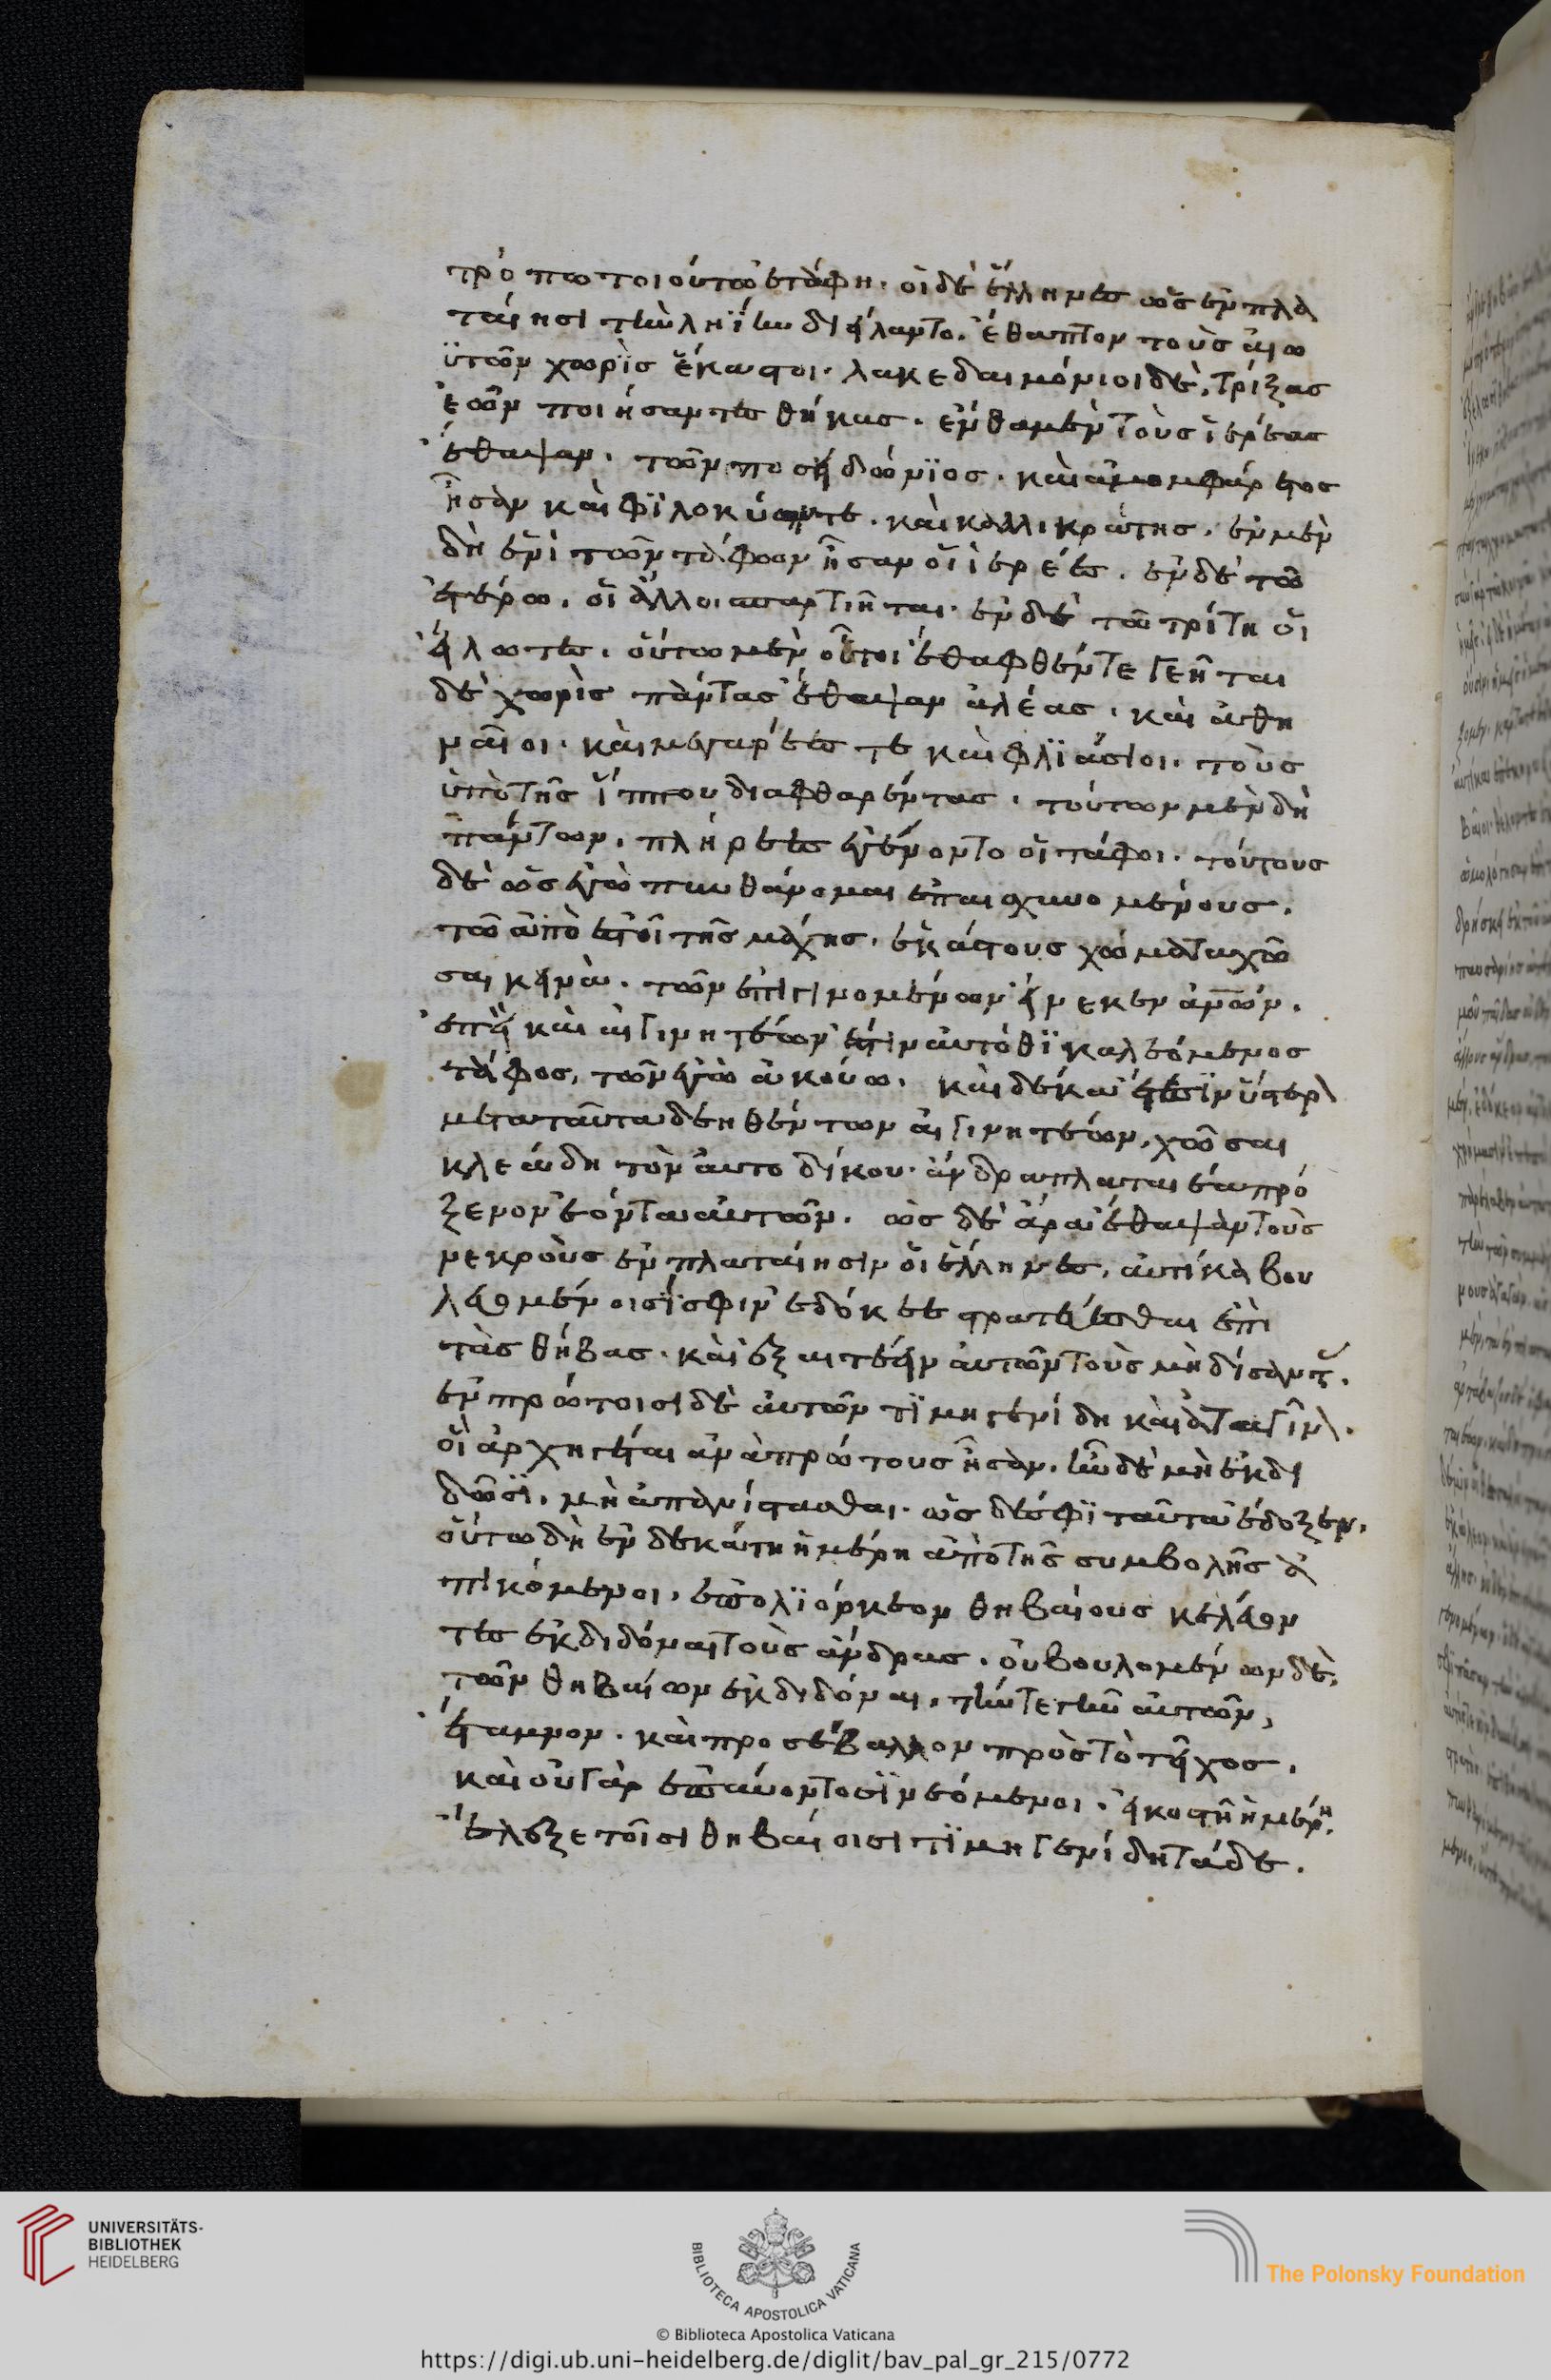 τρόπω τοιούτω ἐτάφη. οἱ δὲ ἕλληνες ὡς ἐν πλα
ταίῃσι τὴν ληίην διείλαντο. ἔθαπτον τοὺς ἑω
ϋτῶν χωρὶς ἕκαστοι. λακεδαιμόνιοι δὲ, τριξὰς
ἐῶν ποιήσαντες θήκας. ἔνθα μὲν τοὺς ἱρέας
ἔθαψαν. τῶν ποσειδώνϊος. καὶ ἀμομφάρετος
ἦσαν καὶ φϊλοκύων τε. καὶ καλλικράτης. ἐν μὲν
δὴ ἑνὶ τῶν τάφων ἦσαν οἱ ἱρέες. ἐν δὲ τῶ
ἑτέρω. οἱ ἄλλοι σπαρτιῆται. ἐν δὲ τῶ τρίτη οἱ
εἵλωτες. οὕτω μὲν οὗτοι ἐθάφθεν τεγεῆται
δὲ χωρὶς πάντας ἔθαψαν ἁλέας. καὶ ἀθη
ναῖοι. καὶ μεγαρέες τε καὶ φλϊάσιοι. τοὺς
ὑπὸ τῆς ἵππου διαφθαρέντας. τούτων μὲν δὴ
πάντων. πλήρεες ἐγένοντο οἱ τάφοι. τούτους
δὲ ὡς ἐγὼ πυνθάνομαι ἐπαισχυνομένους.
τῶ ἀπὸ ἐστοῖ τῆς μάχης. ἑκάστους χώματα χῶ
σαι κεινὰ. τῶν ἐπιγινομένων εἵνεκεν ἀνων.
ἐπεὶ καὶ αἰγινητέων ἐστιν αὐτόθϊ καλεόμενος
τάφος, τῶν ἐγὼ ἀκούω. καὶ δέκα ἔτεσϊν ὕστερ
μετα ταῦτα δεηθέντων αἰγινητέων, χῶσαι
κλεάδη τὸν αὐτοδίκου. ἄνδρα πλαταιέα πρό
ξενον ἐόντα αὐτῶν. ὡς δὲ ἄρα ἔθαψαν τοὺς
νεκροὺς ἐν πλαταίῃσιν οἱ ἕλληνες, αὐτίκα βου
λευομένοισϊ σφιν ἐδόκεε στρατεύεσθαι ἐπὶ
τὰς θήβας. καὶ ἐξαιτέειν αὐτῶν τοὺς μηδίσαντ.
ἐν πρώτοισι δὲ αὐτῶν τϊμηγενίδη καὶ ἀτταγῖν.
οἱ ἀρχηγέται ἀνὰ πρώτους ἦσαν. ἢν δὲ μὴ ἐκδι
δῶσϊ. μὴ ἀπανίστασθαι. ὡς δέ σφϊ ταῦτα ἔδοξεν,
οὕτω δὴ ἐν δεκάτη ἡμέρη ἀπὸ τῆς συμβολῆς ἀ
πικόμενοι, ἐπολϊόρκεον θηβαίους κελεύον
τες ἐκδιδόναι τοὺς ἄνδρας. οὐ βουλομένων δὲ,
τῶν θηβαίων ἐκδιδόναι, τήν τε γῆν αὐτῶν,
ἔταμνον. καὶ προσέβαλλον πρὸς τὸ τεῖχος.
καὶ οὐ γὰρ ἐπαύοντο σϊνεόμενοι. εἰκοστῆ ἡμέρη.
ἔλεξε τοῖσι θηβαίοισι τϊμηγενίδη τάδε.
UNIVERSITÄTS-
BIBLIOTHEK
HEIDELBERG
BIBLIOTECA APOSTOLICA VATICANA
The Polonsky Foundation
© Biblioteca Apostolica Vaticana
https://digi.ub.uni-heidelberg.de/diglit/bav_pal_gr_215/0772